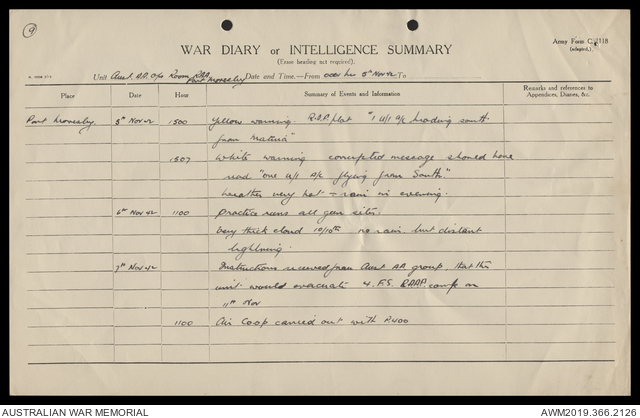 9
Army Form C. 2118
(adapted.)
WAR DIARY or INTELLIGENCE SUMMARY
(Erase heading not required).
Unit Aust. A.A. Ops Room RAA Port Moresby Date and Time,—From 0001 hr 5th Nov 42 To
Place Date Hour Summary of Events and Information Remarks and references to Appendices, Diaries, &c.
Port Moresby 5th Nov 42 1500 Yellow warning. plot "1 U/I A/C heading south
from
1507 White warning corrupted message should have
read "one U/I A/C flying from South."
Weather very hot – rain in evening.
6th Nov 42 1100 Practice runs all gun sites.
Very thick cloud 10/10th no rain but distant
lightning.
7th Nov 42 Instructions received from Aust AA group, that this
unit would evacuate 4. F.S. RAAF. camp on
11th Nov
1100 Air Coop carried out with P.400
AUSTRALIAN WAR MEMORIAL
AWM2019.366.2126